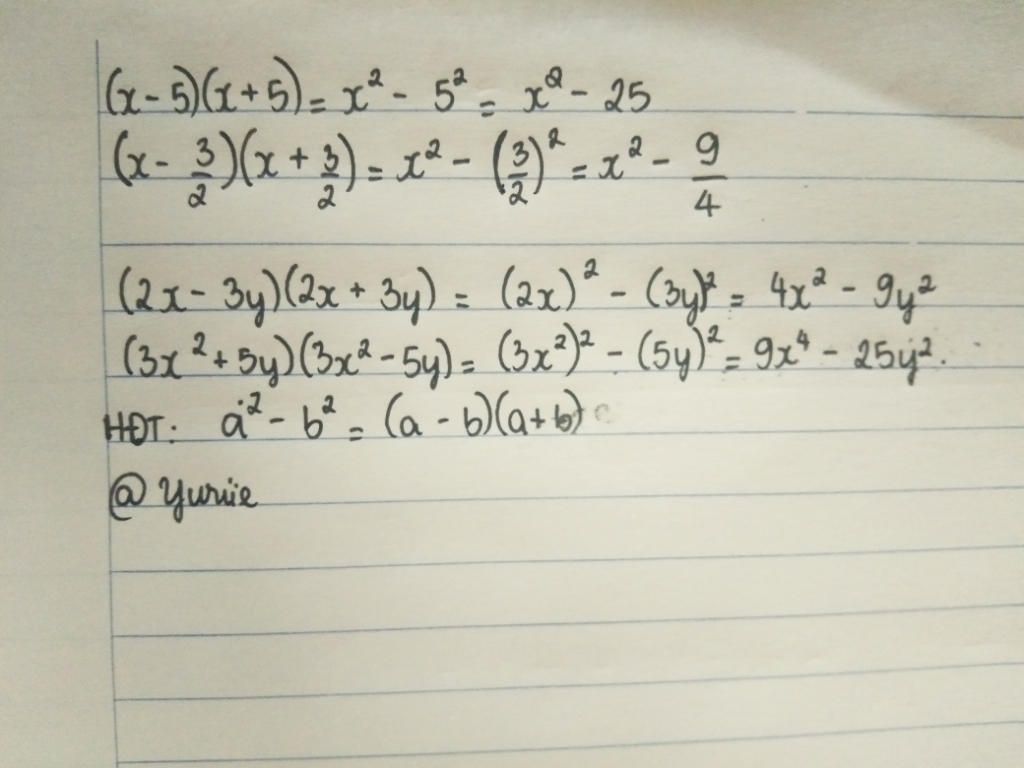 (x - 5)(x + 5) = x² - 5² = x² - 25
(x - 3/2)(x + 3/2) = x² - (3/2)² = x² - 9/4
(2x - 3y)(2x + 3y) = (2x)² - (3y)² = 4x² - 9y²
(3x² + 5y)(3x² - 5y) = (3x²)² - (5y)² = 9x⁴ - 25y².
HĐT: a² - b² = (a - b)(a + b)
@ Yuriie